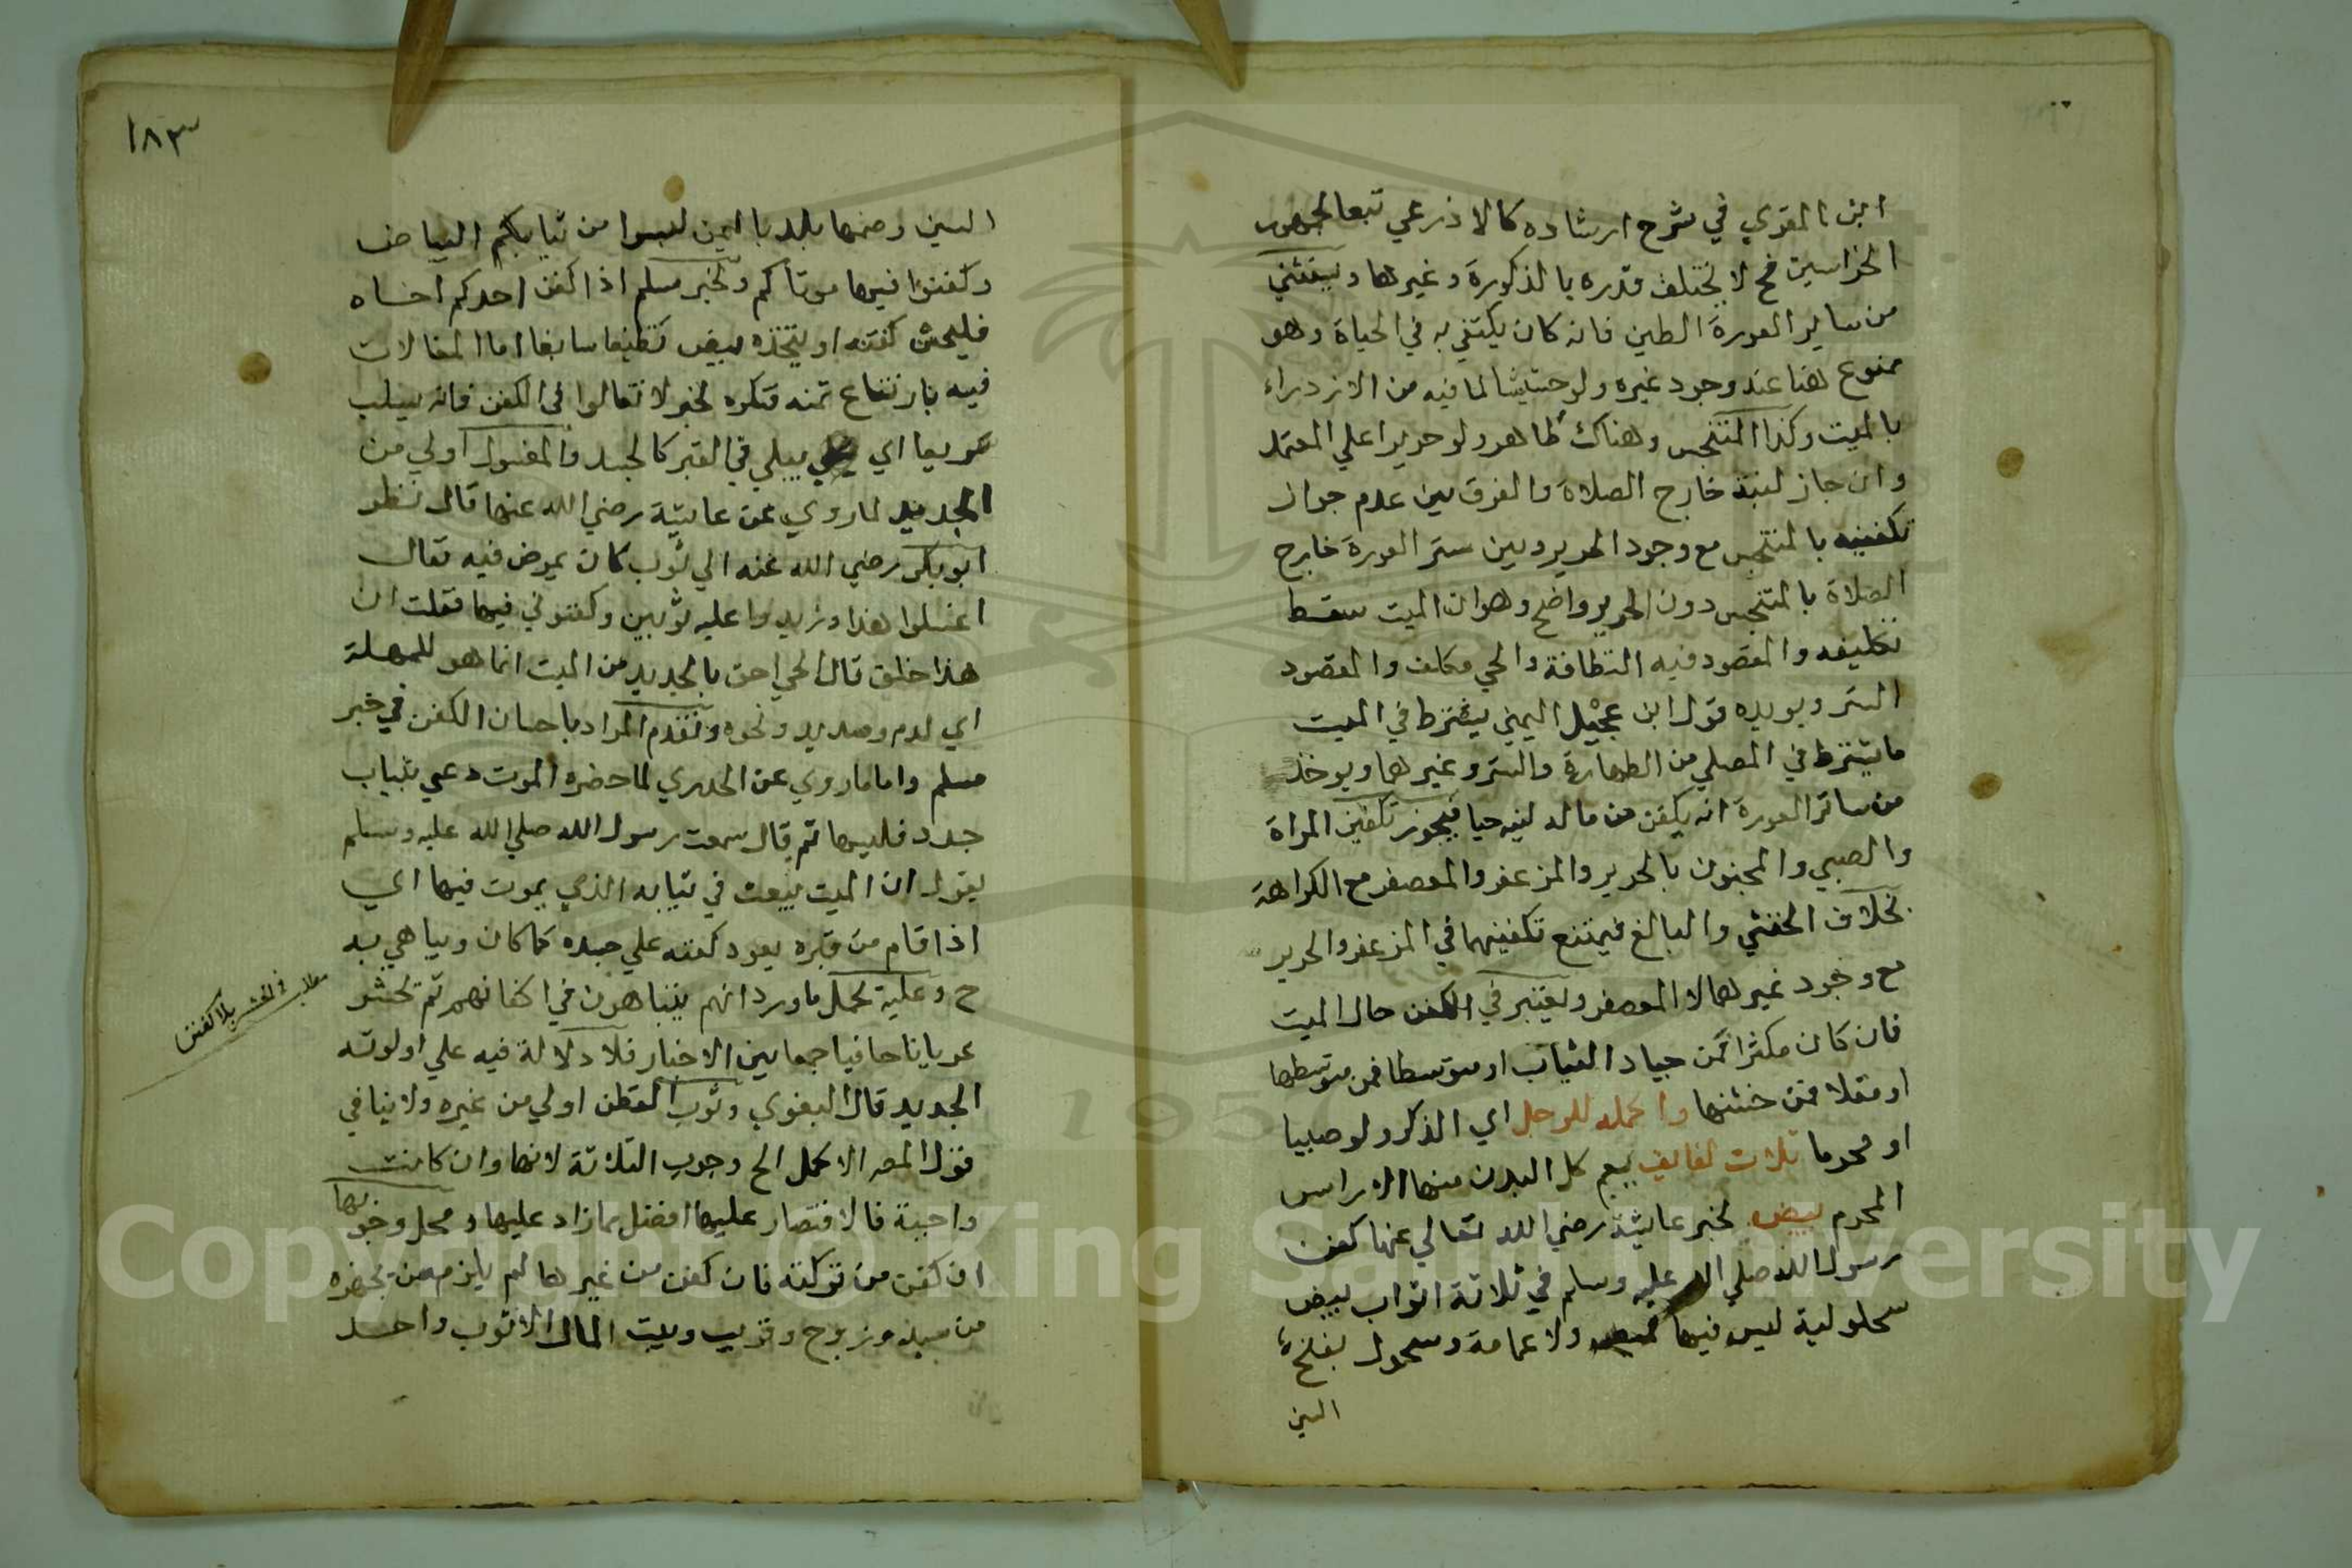 ابن المقري في شرح ارشاده كالاذرعي تبعا لجمهور
الخراسيين فح لا يختلف قدره بالذكورة وغيرها ويستثني
من ساير العورة الطين فانه كان يكتفي به في الحياة وهو
ممنوع هنا عند وجود غيره ولو حشيشا لما فيه من الازدراء
بالميت وكذا المتنجس وهناك طاهر ولو حريرا علي المعتمد
وان جاز لبسه خارج الصلاة والفرق بين عدم جواز
تكفينه بالمتنجس مع وجود الحرير وبين ستر العورة خارج
الصلاة بالمتنجس دون الحرير واضح وهو ان الميت سقط
تكليفه والمقصود فيه النظافة والحي مكلف والمقصود
الستر ويويده قول ابن عجيل اليمني يشترط في الميت
ما يشترط في المصلي من الطهارة والستر وغيرهما ويوخذ
من ساتر العورة انه يكفن من ماله لبسه حيا فيجوز تكفين المراة
والصبي والمجنون بالحرير والمزعفر والمعصفر مع الكراهة
بخلاف الخنثي والبالغ فيمتنع تكفينهما في المزعفر والحرير
مع وجود غيرهما لا المعصفر ويعتبر في الكفن حال الميت
فان كان مكثرا فمن جياد الثياب او متوسطا فمن متوسطها
او مقلا فمن خشنها واكمله للرجل اي الذكر ولو صبيا
او محرما ثلاث لفايف يعم كل البدن منها الا راس
المحرم بيض لخبر عايشة رضي الله تعالي عنها كفن
رسول الله صلي الله عليه وسلم في ثلاثة اثواب بيض
سحولية ليس فيها قميص ولا عمامة وسحول بفتح
السين
١٨٣
السين وضمها بلد باليمن البسوا من ثيابكم البياض
وكفنوا فيها موتاكم ولخبر مسلم اذا كفن احدكم اخاه
فليحسن كفنه او يتخذه بيض نظيفا سابغا اما المغالات
فيه بارتفاع ثمنه فتكره لخبر لا تغالوا في الكفن فانه يسلب
سريعا اي يبلي في القبر كالجسد والمغسول اولي من
الجديد لما روي عن عايشة رضي الله عنها قال نظر
ابو بكر رضي الله عنه الي ثوب كان يمرض فيه فقال
اغسلوا هذا وزيدوا عليه ثوبين وكفنوني فيها فقلت ان
هذا خلق قال الحي احق بالجديد من الميت انما هو للمهلة
اي لدم وصديد ونحوه وتقدم المراد باحسان الكفن في خبر
مسلم واما ما روي عن الخدري لما حضره الموت دعي بثياب
جدد فلبسها ثم قال سمعت رسول الله صلي الله عليه وسلم
يقول ان الميت يبعث في ثيابه الذي يموت فيها اي
اذا قام من قبره يعود كفنه علي جسده كما كان ويباهي به
ح وعليه يحمل ما ورد انهم يتباهون في اكفانهم ثم تحشر
عريانا حافيا جمعا بين الاخبار فلا دلالة فيه علي اولوية
الجديد قال البغوي وثوب القطن اولي من غيره ولا ينافي
قول المصر الاكمل الح وجوب الثلاثة لانها وان كانت
واجبة فالاقتصار عليها افضل مما زاد عليها ومحل وجوبها
ان كفن من تركته فان كفن من غيرها لم يلزم من يجهزه
من سيد وزوج وقريب وبيت المال الا ثوب واحد
مطلب الحشر بلا كفن
Copyright © King Saud University
1957